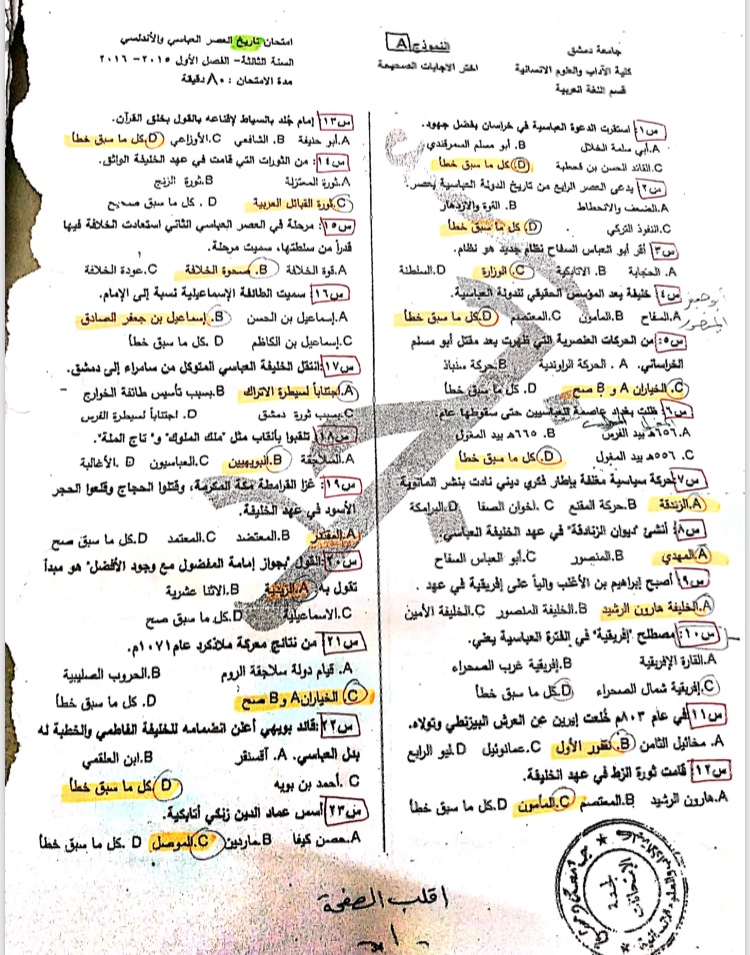 جامعة دمشق
كلية الآداب والعلوم الانسانية
قسم اللغة العربية
النموذج A
اختر الاجابات الصحيحة
امتحان تاريخ العصر العباسي والأندلسي
السنة الثالثة- الفصل الأول ٢٠١٥- ٢٠١٦
مدة الامتحان : ٨٠ دقيقة
س١: استقرت الدعوة العباسية في خراسان بفضل جهود.
A.أبي سلمة الخلال B. أبو مسلم السمرقندي
C.القائد الحسن بن قحطبة D. كل ما سبق خطأ
س٢: يدعى العصر الرابع من تاريخ الدولة العباسية بعصر.
A.الضعف والانحطاط B. القوة والازدهار
C.النفوذ التركي D. كل ما سبق خطأ
س٣: أقر أبو العباس السفاح نظام جديد هو نظام.
A. الحجابة B. الاتابكية C. الوزارة D.السلطنة
س٤: خليفة يعد المؤسس الحقيقي للدولة العباسية.
أبو جعفر المنصور
A.السفاح B.المأمون C.المعتصم D.كل ما سبق خطأ
س٥: من الحركات العنصرية التي ظهرت بعد مقتل أبو مسلم
الخراساني. A . الحركة الراوندية B.حركة سنباذ
C. الخياران A و B صح D. كل ما سبق خطأ
س٦: ظلت بغداد عاصمة للعباسيين حتى سقوطها عام.
A.٦٥٦هـ بيد الفرس B. ٦٦٥هـ بيد المغول
C. ٥٥٦هـ بيد المغول D. كل ما سبق خطأ
س٧:حركة سياسية مغلفة بإطار فكري ديني نادت بنشر المانوية
A.الزندقة B. حركة المقنع C. اخوان الصفا D.البرامكة
س٨: أنشئ "ديوان الزنادقة" في عهد الخليفة العباسي.
A.المهدي B.المنصور C. أبو العباس السفاح
س٩: أصبح إبراهيم بن الأغلب والياً على إفريقية في عهد .
A.الخليفة هارون الرشيد B.الخليفة المنصور C.الخليفة الأمين
س١٠: مصطلح "إفريقية" في الفترة العباسية يعني.
A.القارة الإفريقية B.إفريقية غرب الصحراء
C.إفريقية شمال الصحراء D.كل ما سبق خطأ
س١١: في عام ٨٠٣م خُلعت إيرين عن العرش البيزنطي وتولاه.
A. مخائيل الثامن B.نقفور الأول C.عمانوئيل D.ليو الرابع
س١٢: قامت ثورة الزط في عهد الخليفة.
A.هارون الرشيد B.المعتصم C.المأمون D.كل ما سبق خطأ
س١٣: إمام جُلد بالسياط لإقناعه بالقول بخلق القرآن.
A.أبو حنيفة B. الشافعي C.الأوزاعي D.كل ما سبق خطأ
س١٤: من الثورات التي قامت في عهد الخليفة الواثق.
A.ثورة المعتزلة B.ثورة الزنج
C.ثورة القبائل العربية D. كل ما سبق صحيح
س١٥: مرحلة في العصر العباسي الثاني استعادت الخلافة فيها
قدراً من سلطتها، سميت مرحلة.
A.قوة الخلافة B. صحوة الخلافة C.عودة الخلافة
س١٦: سميت الطائفة الإسماعيلية نسبة إلى الإمام.
A.إسماعيل بن الحسن B. إسماعيل بن جعفر الصادق
C.إسماعيل بن الكاظم D. كل ما سبق خطأ
س١٧: انتقل الخليفة العباسي المتوكل من سامراء إلى دمشق.
A.اجتناباً لسيطرة الاتراك B.بسبب تأسيس طائفة الخوارج
C.بسبب ثورة دمشق D. اجتناباً لسيطرة الفرس
س١٨: تلقبوا بألقاب مثل "ملك الملوك" و" تاج الملة".
A.السلاجقة B.البويهيين C.العباسيون D. الأغالبة
س١٩: غزا القرامطة مكة المكرمة، وقتلوا الحجاج وقلعوا الحجر
الأسود في عهد الخليفة.
A.المقتدر B.المعتضد C.المعتمد D.كل ما سبق صح
س٢٠: القول "بجواز إمامة المفضول مع وجود الأفضل" هو مبدأ
تقول به: A.الزيدية B.الاثنا عشرية
C.الاسماعيلية D.كل ما سبق صح
س٢١: من نتائج معركة ملاذكرد عام ١٠٧١م.
A. قيام دولة سلاجقة الروم B.الحروب الصليبية
C.الخياران A و B صح D. كل ما سبق خطأ
س٢٢: قائد بويهي أعلن انضمامه للخليفة الفاطمي والخطبة له
بدل العباسي. A. آقسنقر B.ابن العلقمي
C. أحمد بن بويه D.كل ما سبق خطأ
س٢٣: أسس عماد الدين زنكي أتابكية.
A.حصن كيفا B.ماردين C.الموصل D .كل ما سبق خطأ
اقلب الصفحة
-١-